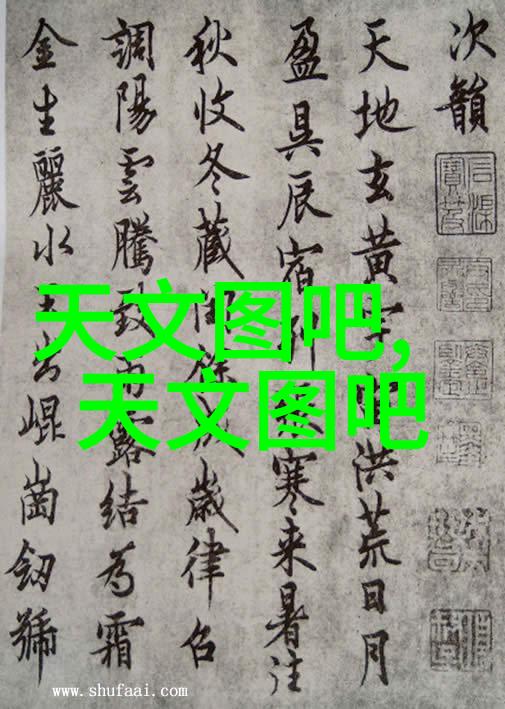 次韻
天地玄黄宇洪荒日月
盈昃辰宿列寒来暑往
秋收冬藏閏餘成歲律召
調陽雲騰致雨露結為霜
金生麗水玉出崐崗劒號
天文图吧,
天文图吧
www.shufaai.com